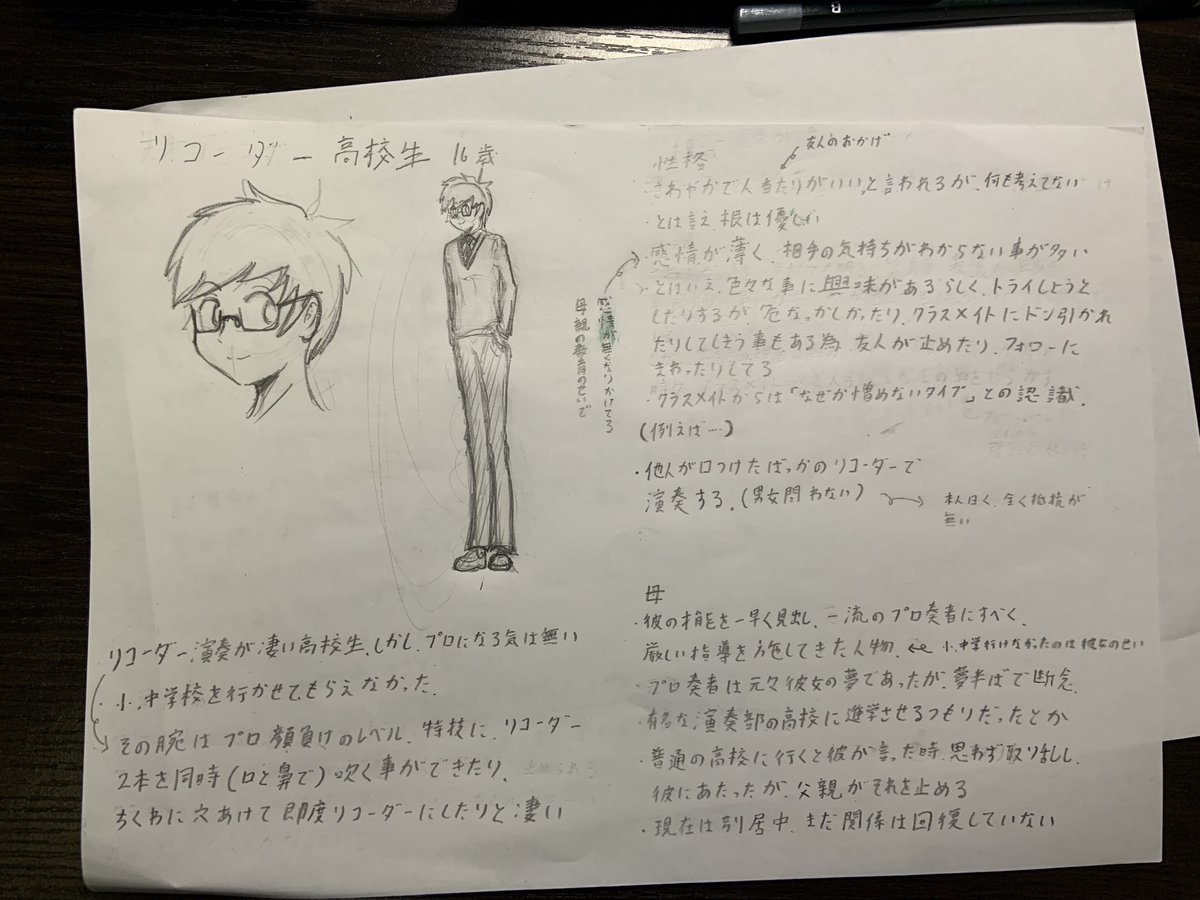 リコーダー高校生 16歳
リコーダー演奏が凄い高校生、しかし プロになる気は無い
・小、中学校を行かせてもらえなかった.
その腕は プロ顔負けのレベル. 特技に、リコーダー
2本を同時(口と鼻で)吹く事ができたり、
ちくわに穴あけて 即席リコーダーにしたりと凄い
性格
友人のおかげ
さわやかで人当たりがいい、と言われるが、何も考えてない
・とは言え 根は優しい
・感情が薄く、相手の気持ちがわからない事が多い
感情が無くなりかけてる
母親の教育のせいで
・とはいえ、色々な事に興味があるらしく、トライしようと
したりするが、危なっかしかったり、クラスメイトにドン引かれ
たりしてしまう事もある為 友人が止めたり、フォローに
まわったりしてる
・クラスメイトからは「なぜか憎めないタイプ」との認識.
(例えば…)
・他人が口つけたばっかのリコーダーで
演奏する. (男女問わない)
本人曰く、全く抵抗が
無い
母
・彼の才能を一早く見出し、一流のプロ奏者にすべく、
厳しい指導を施してきた人物. ← 小、中学行けなかったのは彼女のせい
・プロ奏者は元々彼女の夢であったが、夢半ばで断念.
・有名な演奏部の高校に進学させるつもりだったとか
・普通の高校に行くと彼が言った時、思わず取り乱し、
彼にあたったが、父親がそれを止める
・現在は別居中. まだ関係は回復していない